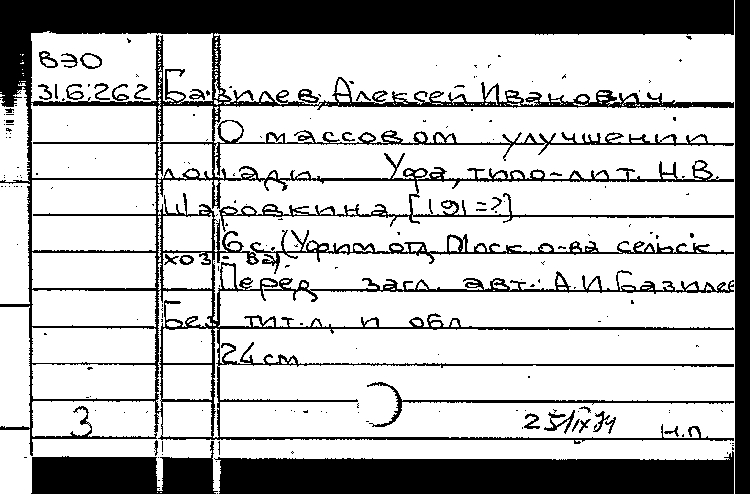 ВЭО
31.6.262 Базилев, Алексей Иванович.
О массовом улучшении
лошади. Уфа, типо-лит. Н.В.
Шаровкина, [191=?]
6 с. (Уфим отд Моск о-ва сельск.
хоз-ва)
Перед загл. авт.: А.И.Базилев
Без тит.л. и обл.
24 см
3 25/IX 74 Н.П.